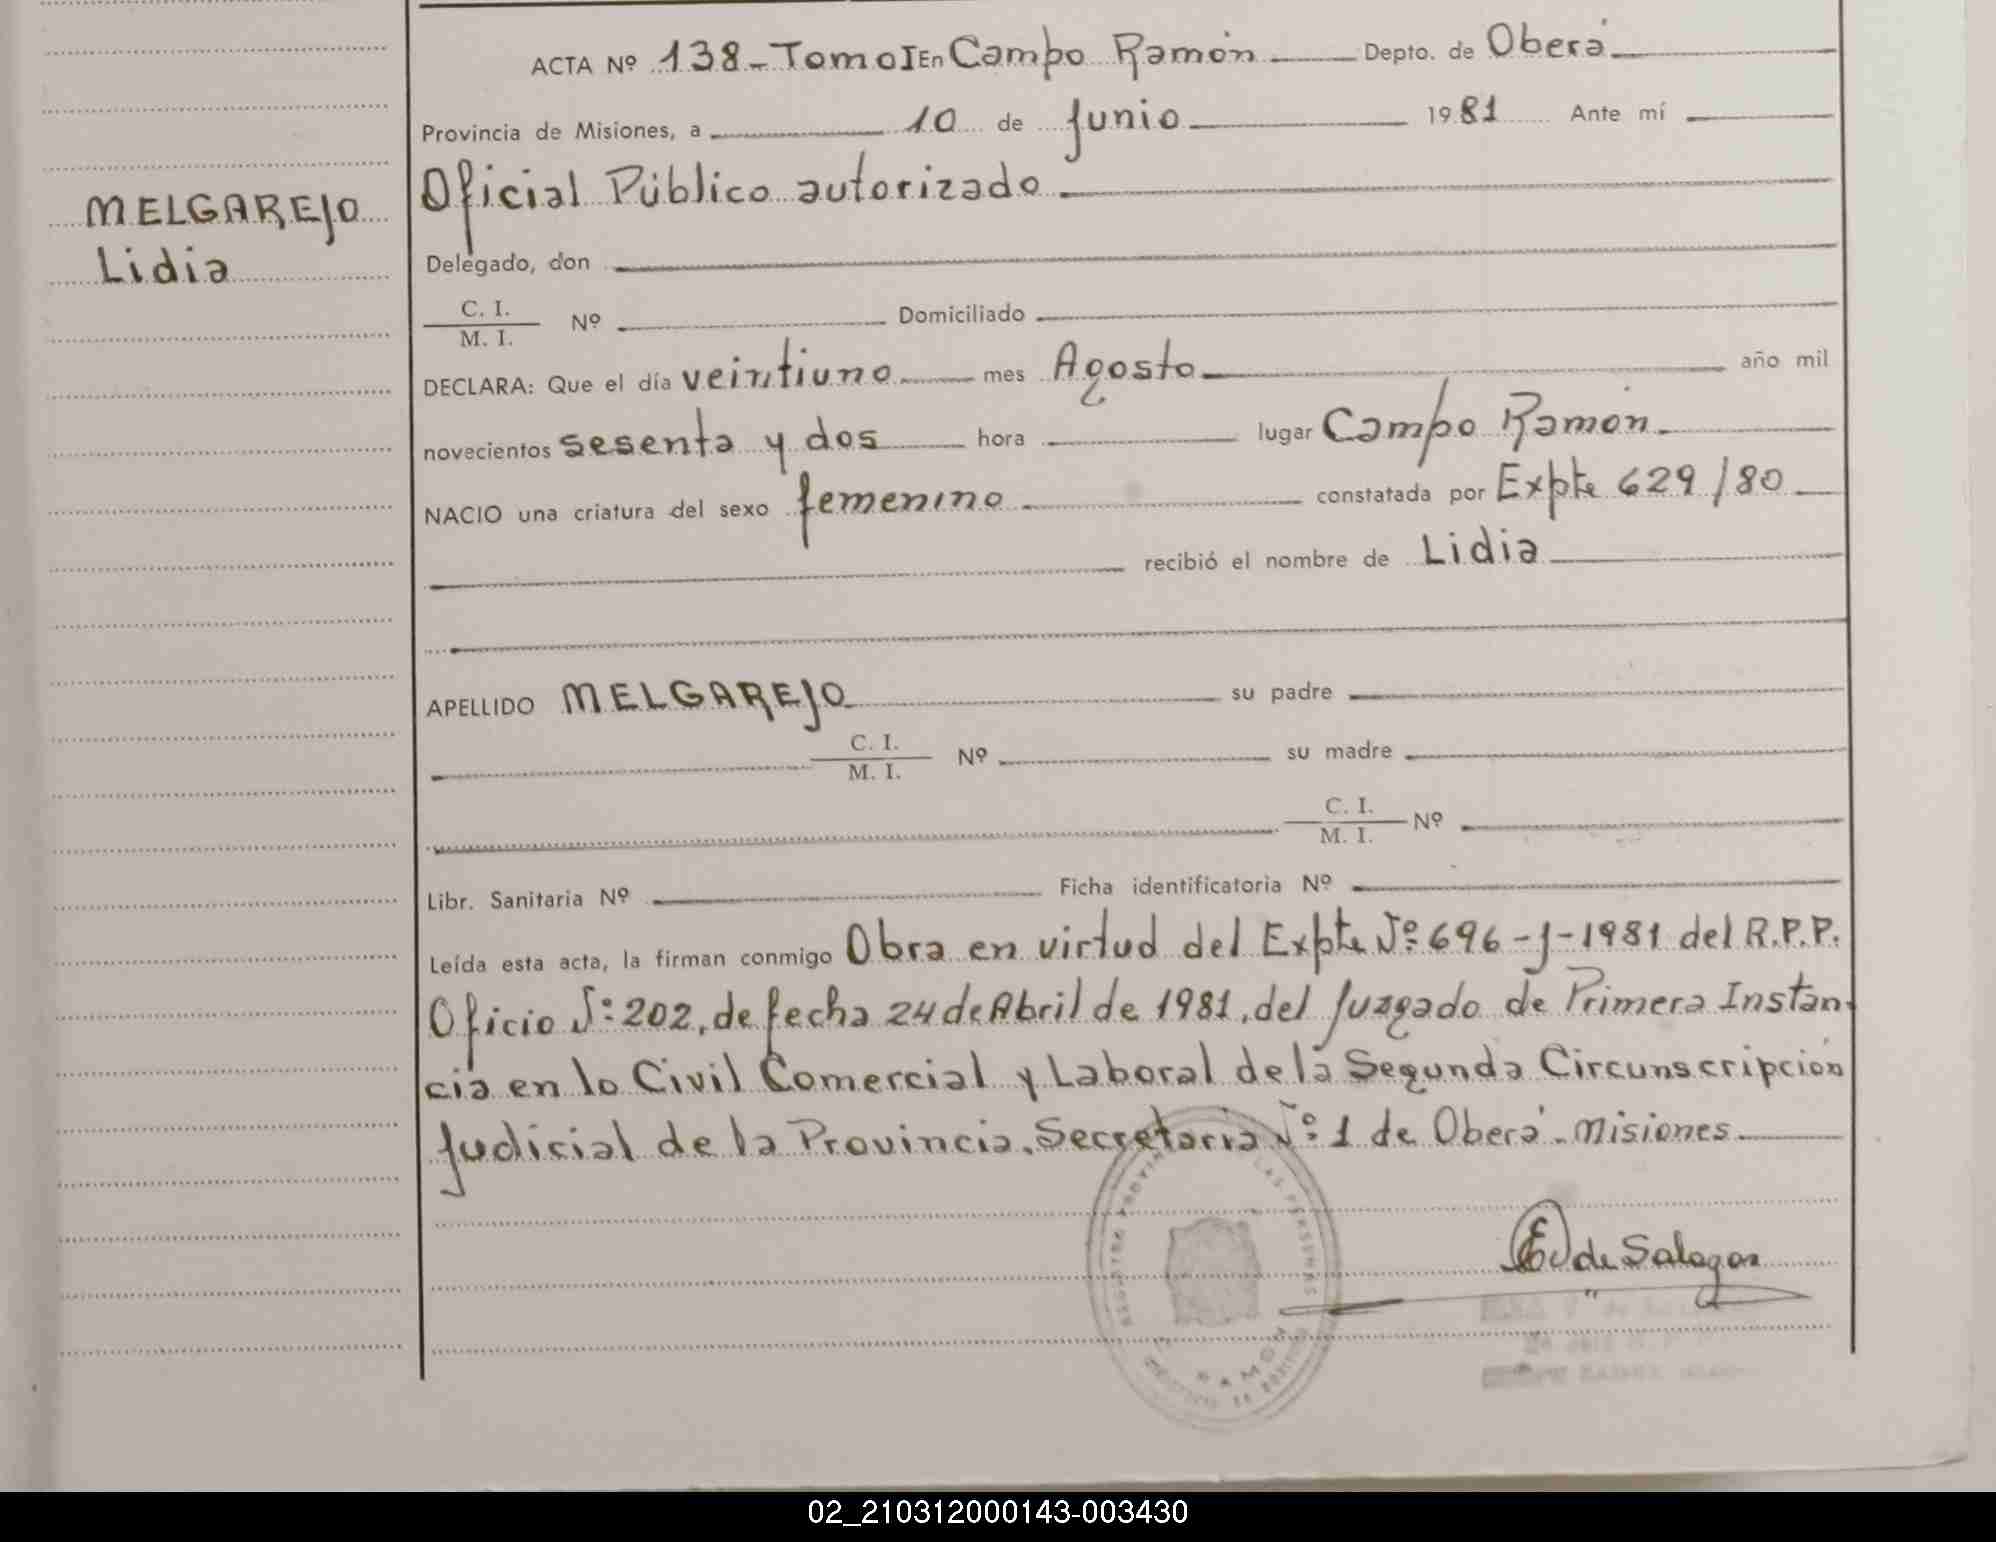 ACTA Nº 138 - Tomo I En Campo Ramón Depto. de Oberá
Provincia de Misiones, a 10 de Junio 1981 Ante mí
MELGAREJO
Oficial Público autorizado
Lidia
Delegado, don
C. I.
M. I. Nº Domiciliado
DECLARA: Que el día veintiuno mes Agosto año mil
novecientos sesenta y dos hora lugar Campo Ramón
NACIO una criatura del sexo femenino constatada por Expte 629/80
recibió el nombre de Lidia
APELLIDO MELGAREJO su padre
C. I.
M. I. Nº su madre
C. I.
M. I. Nº
Libr. Sanitaria Nº Ficha identificatoria Nº
Leída esta acta, la firman conmigo Obra en virtud del Expte Nº: 696-J-1981 del R.P.P.
Oficio Nº: 202, de fecha 24 de Abril de 1981, del Juzgado de Primera Instan-
cia en lo Civil Comercial y Laboral de la Segunda Circunscripción
Judicial de la Provincia, Secretaria Nº: 1 de Oberá - Misiones
LAS PERSONAS
RAMON
de Salazar
02_210312000143-003430